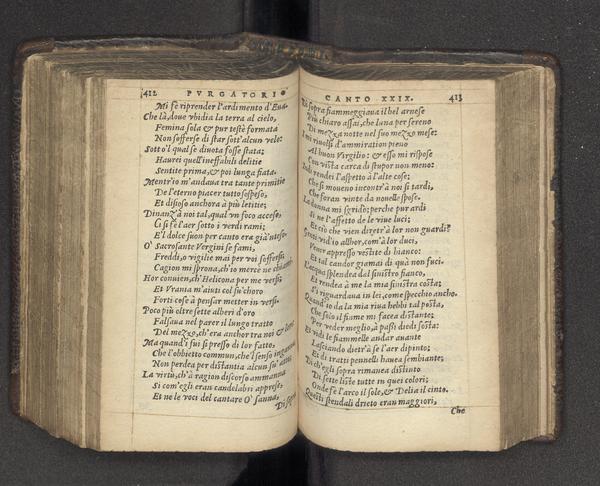 412 PVRGATORIO
Mi fè riprender l'ardimento d'Eua.
Che là, doue vbidia la terra al cielo,
Femina sola & pur testè formata
Non sofferse di star sott'alcun velo:
Sotto'l qual se diuota fosse stata;
Haurei quell'ineffabili delitie
Sentite prima, & poi lunga fiata.
Mentr'io m'andaua tra tante primitie
De l'eterno piacer tutto sospeso,
Et disioso anchora à più letitie;
Dinanz'à noi tal, qual vn foco acceso,
Ci si fè l'aer sotto i verdi rami;
E'l dolce suon per canto era già'nteso.
O' Sacrosante Vergini se fami,
Freddi, o vigilie mai per voi soffersi;
Cagion mi sprona, ch'io mercè ne
Hor conuien, ch'Helicona per me versi;
Et Vrania m'aiuti col su'choro
Forti cose à pensar metter in versi.
Poco più oltre sette alberi d'oro
Falsaua nel parer il lungo tratto
Del mezzo, ch'era anchor tra noi &
Ma quand'i fui sì presso di lor fatto,
Che l'obbietto commun, che'l senso
Non perdea per distantia alcun su'
La virtù, ch'à ragion discorso ammanna
Sì com'egli eran candelabri apprese;
Et ne le voci del cantare O' sanna,
Di
CANTO XXIX. 413
Di sopra fiammeggiaua il bel arnese
Più chiaro assai, che luna per sereno
Di mezza notte nel suo mezzo mese:
I mi riuolsi d'ammiration pieno
Al buon Virgilio: & esso mi rispose
Con vista carca di stupor non meno:
Indi rendei l'aspetto à l'alte cose;
Che si moueno incontr'à noi sì tardi,
Che foran vinte da nouelle spose.
La donna mi sgridò; perche pur ardi
Sì ne l'affetto de le viue luci;
Et ciò che vien dietr'à lor non guardi?
Genti vid'io allhor, com'à lor duci,
Venir appresso vestite di bianco:
Et tal candor giamai di quà non fuci.
L'acqua splendea dal sinistro fianco,
Et rendea à me la mia sinistra costa;
S'i riguardaua in lei, come specchio ancho.
Quand'io da la mia riua hebbi tal posta,
Che solo il fiume mi facea distante;
Per veder meglio, à passi diedi sosta:
Et vidi le fiammelle andar auante
Lasciando dietr'à se l'aer dipinto;
Et di tratti pennelli hauea sembiante;
Di ch'egli sopra rimanea distinto
Di sette liste tutte in quei colori;
Onde fè l'arco il sole, & Delia il cinto.
Questi stendali drieto eran maggiori,
Che